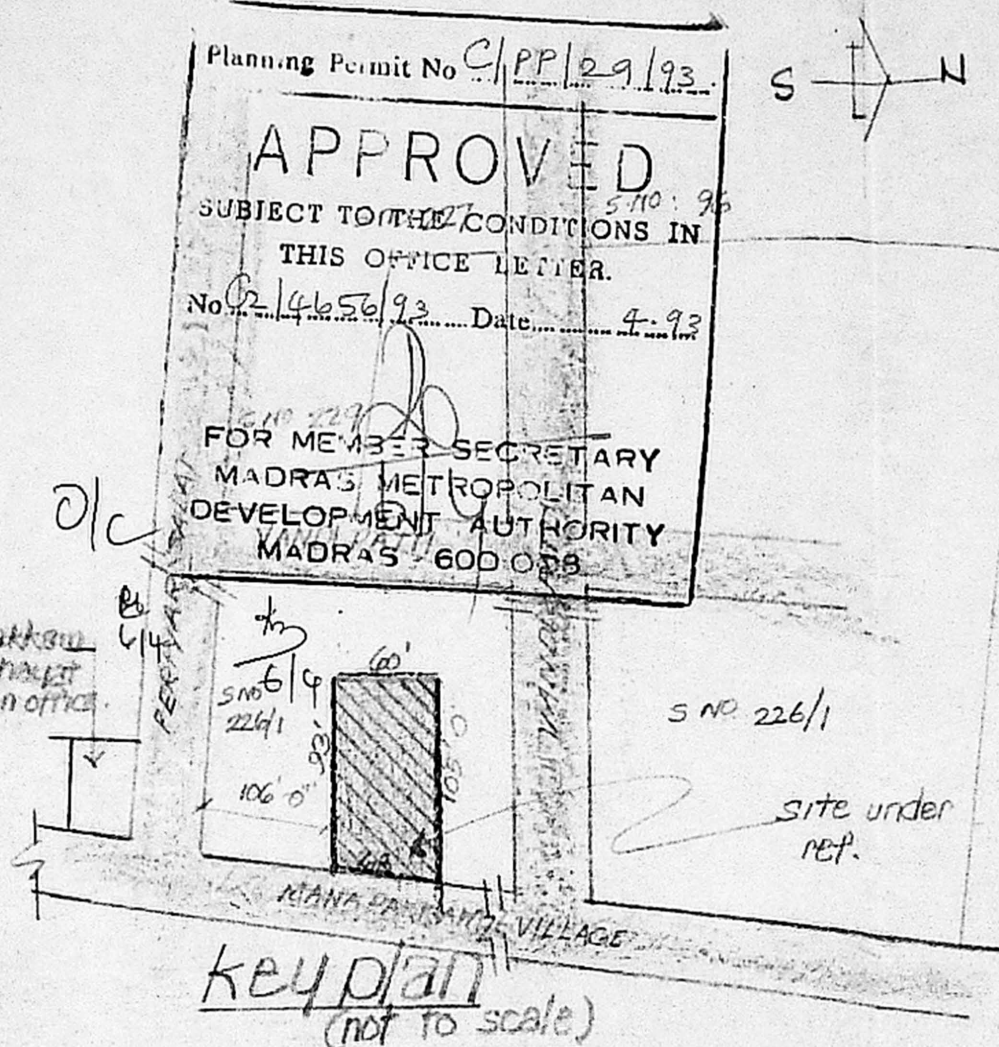 Planning Permit No C/PP/29/93.
S N
APPROVED
S NO: 96
SUBJECT TO THE CONDITIONS IN
THIS OFFICE LETTER.
No C2/4656/93 Date 4.93
S NO 229
FOR MEMBER SECRETARY
MADRAS METROPOLITAN
DEVELOPMENT AUTHORITY
MADRAS 600 008
O/C
6/4
6/4
60'
S NO
226/1
93'
106'-0"
S NO 226/1
site under
ref.
VILLAGE
key plan
(not to scale)